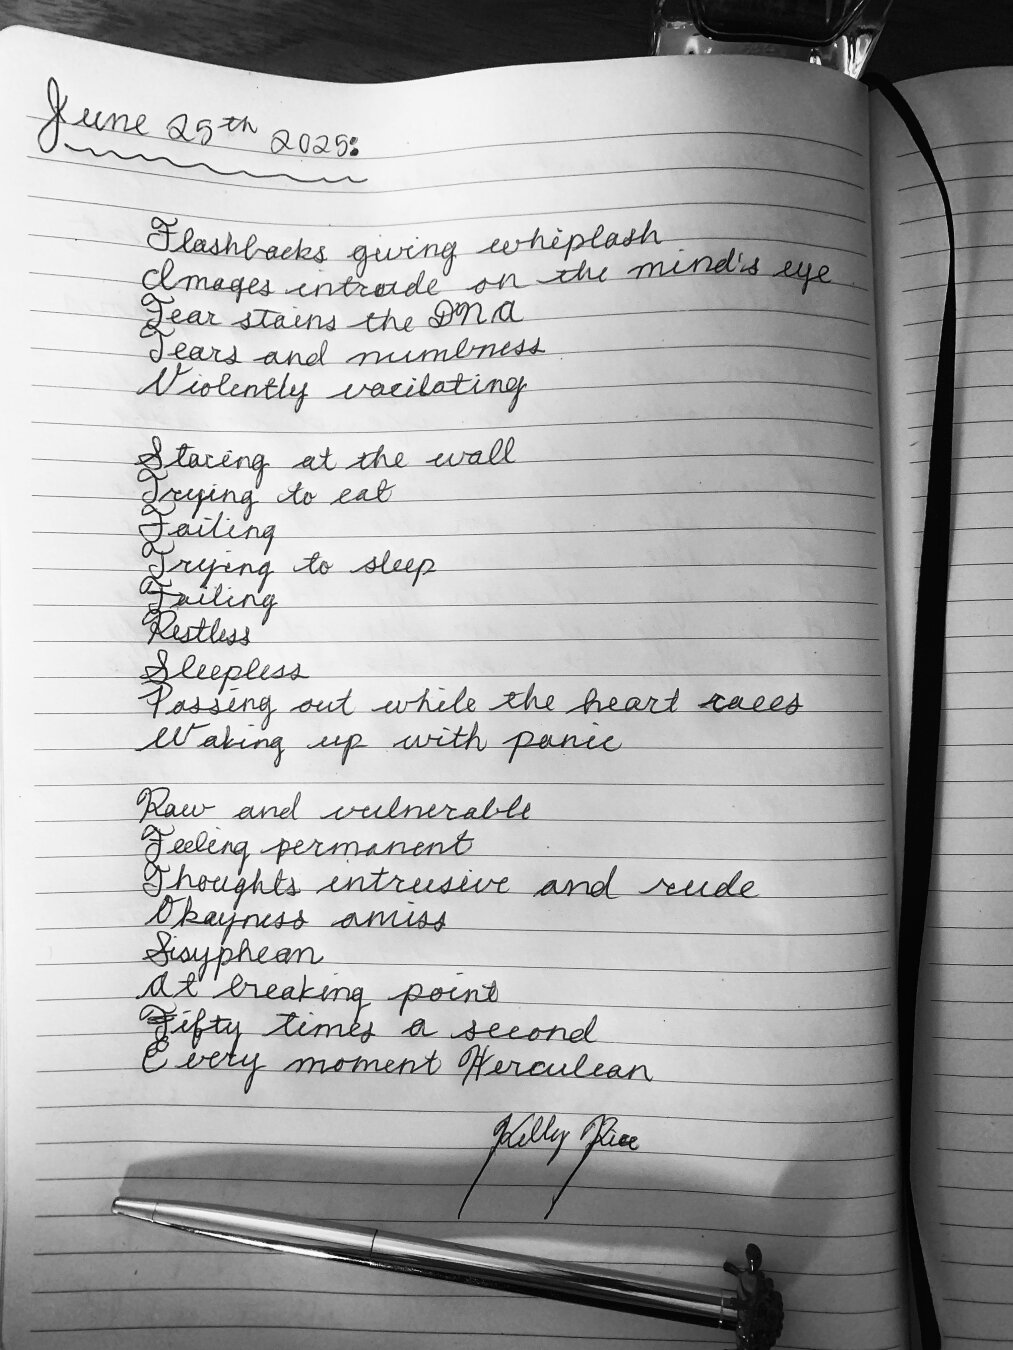 June 25th 2025:
Flashbacks giving whiplash
Images intrude on the mind's eye
Fear stains the DNA
Tears and numbness
Violently vacilating
Staring at the wall
Trying to eat
Failing
Trying to sleep
Failing
Restless
Sleepless
Passing out while the heart races
Waking up with panic
Raw and vulnerable
Feeling permanent
Thoughts intrusive and rude
Okayness amiss
Sisyphean
At breaking point
Fifty times a second
Every moment Herculean
Kelly Rice